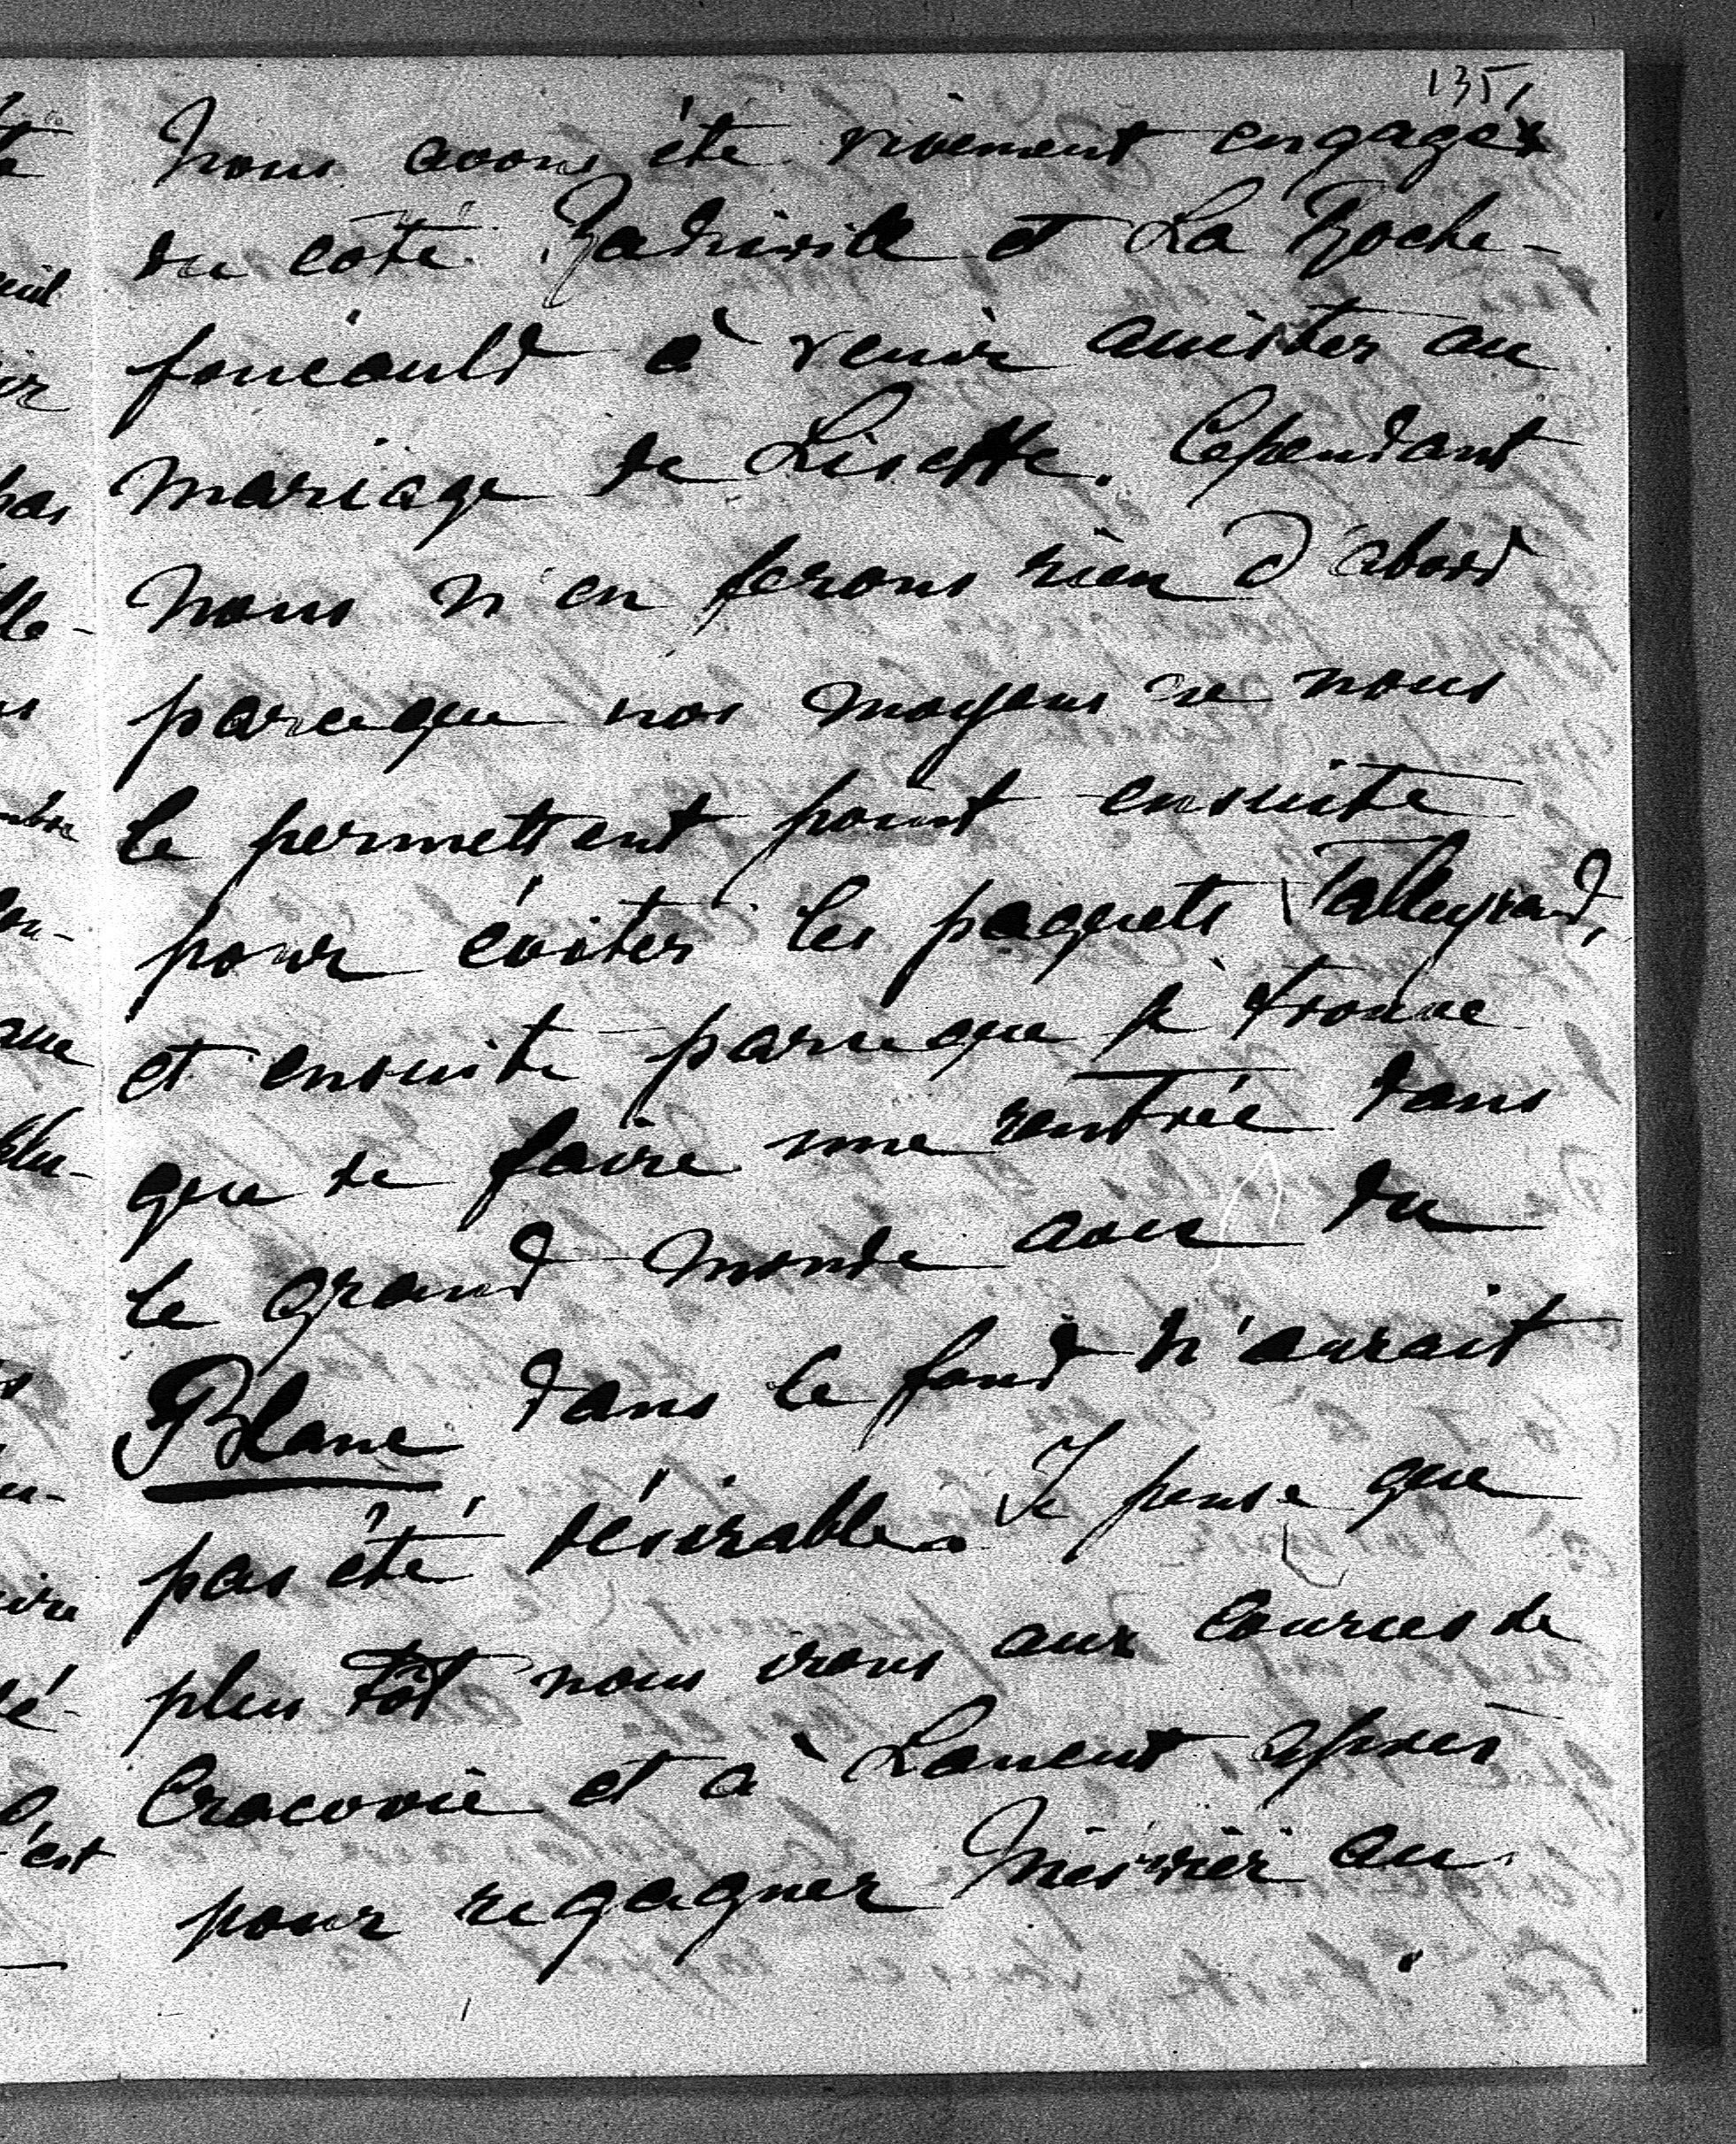 135,
Nous avons été vivement engagés
du côté Radziwill et La Roche-
foucauld à venir assister au
mariage de Lisette. Cependant
nous n'en ferons rien d'abord
parceque nos moyens ne nous
le permettent point ensuite
pour éviter les paquets Talleyrand,
et ensuite parceque je trouve
que de faire une rentrée dans
le grand monde avec du
Blanc dans le fond n'aurait
pas été désirable. Je pense que
plus tôt nous irons aux Courses de
Cracovie et à Lancut après
pour regagner au